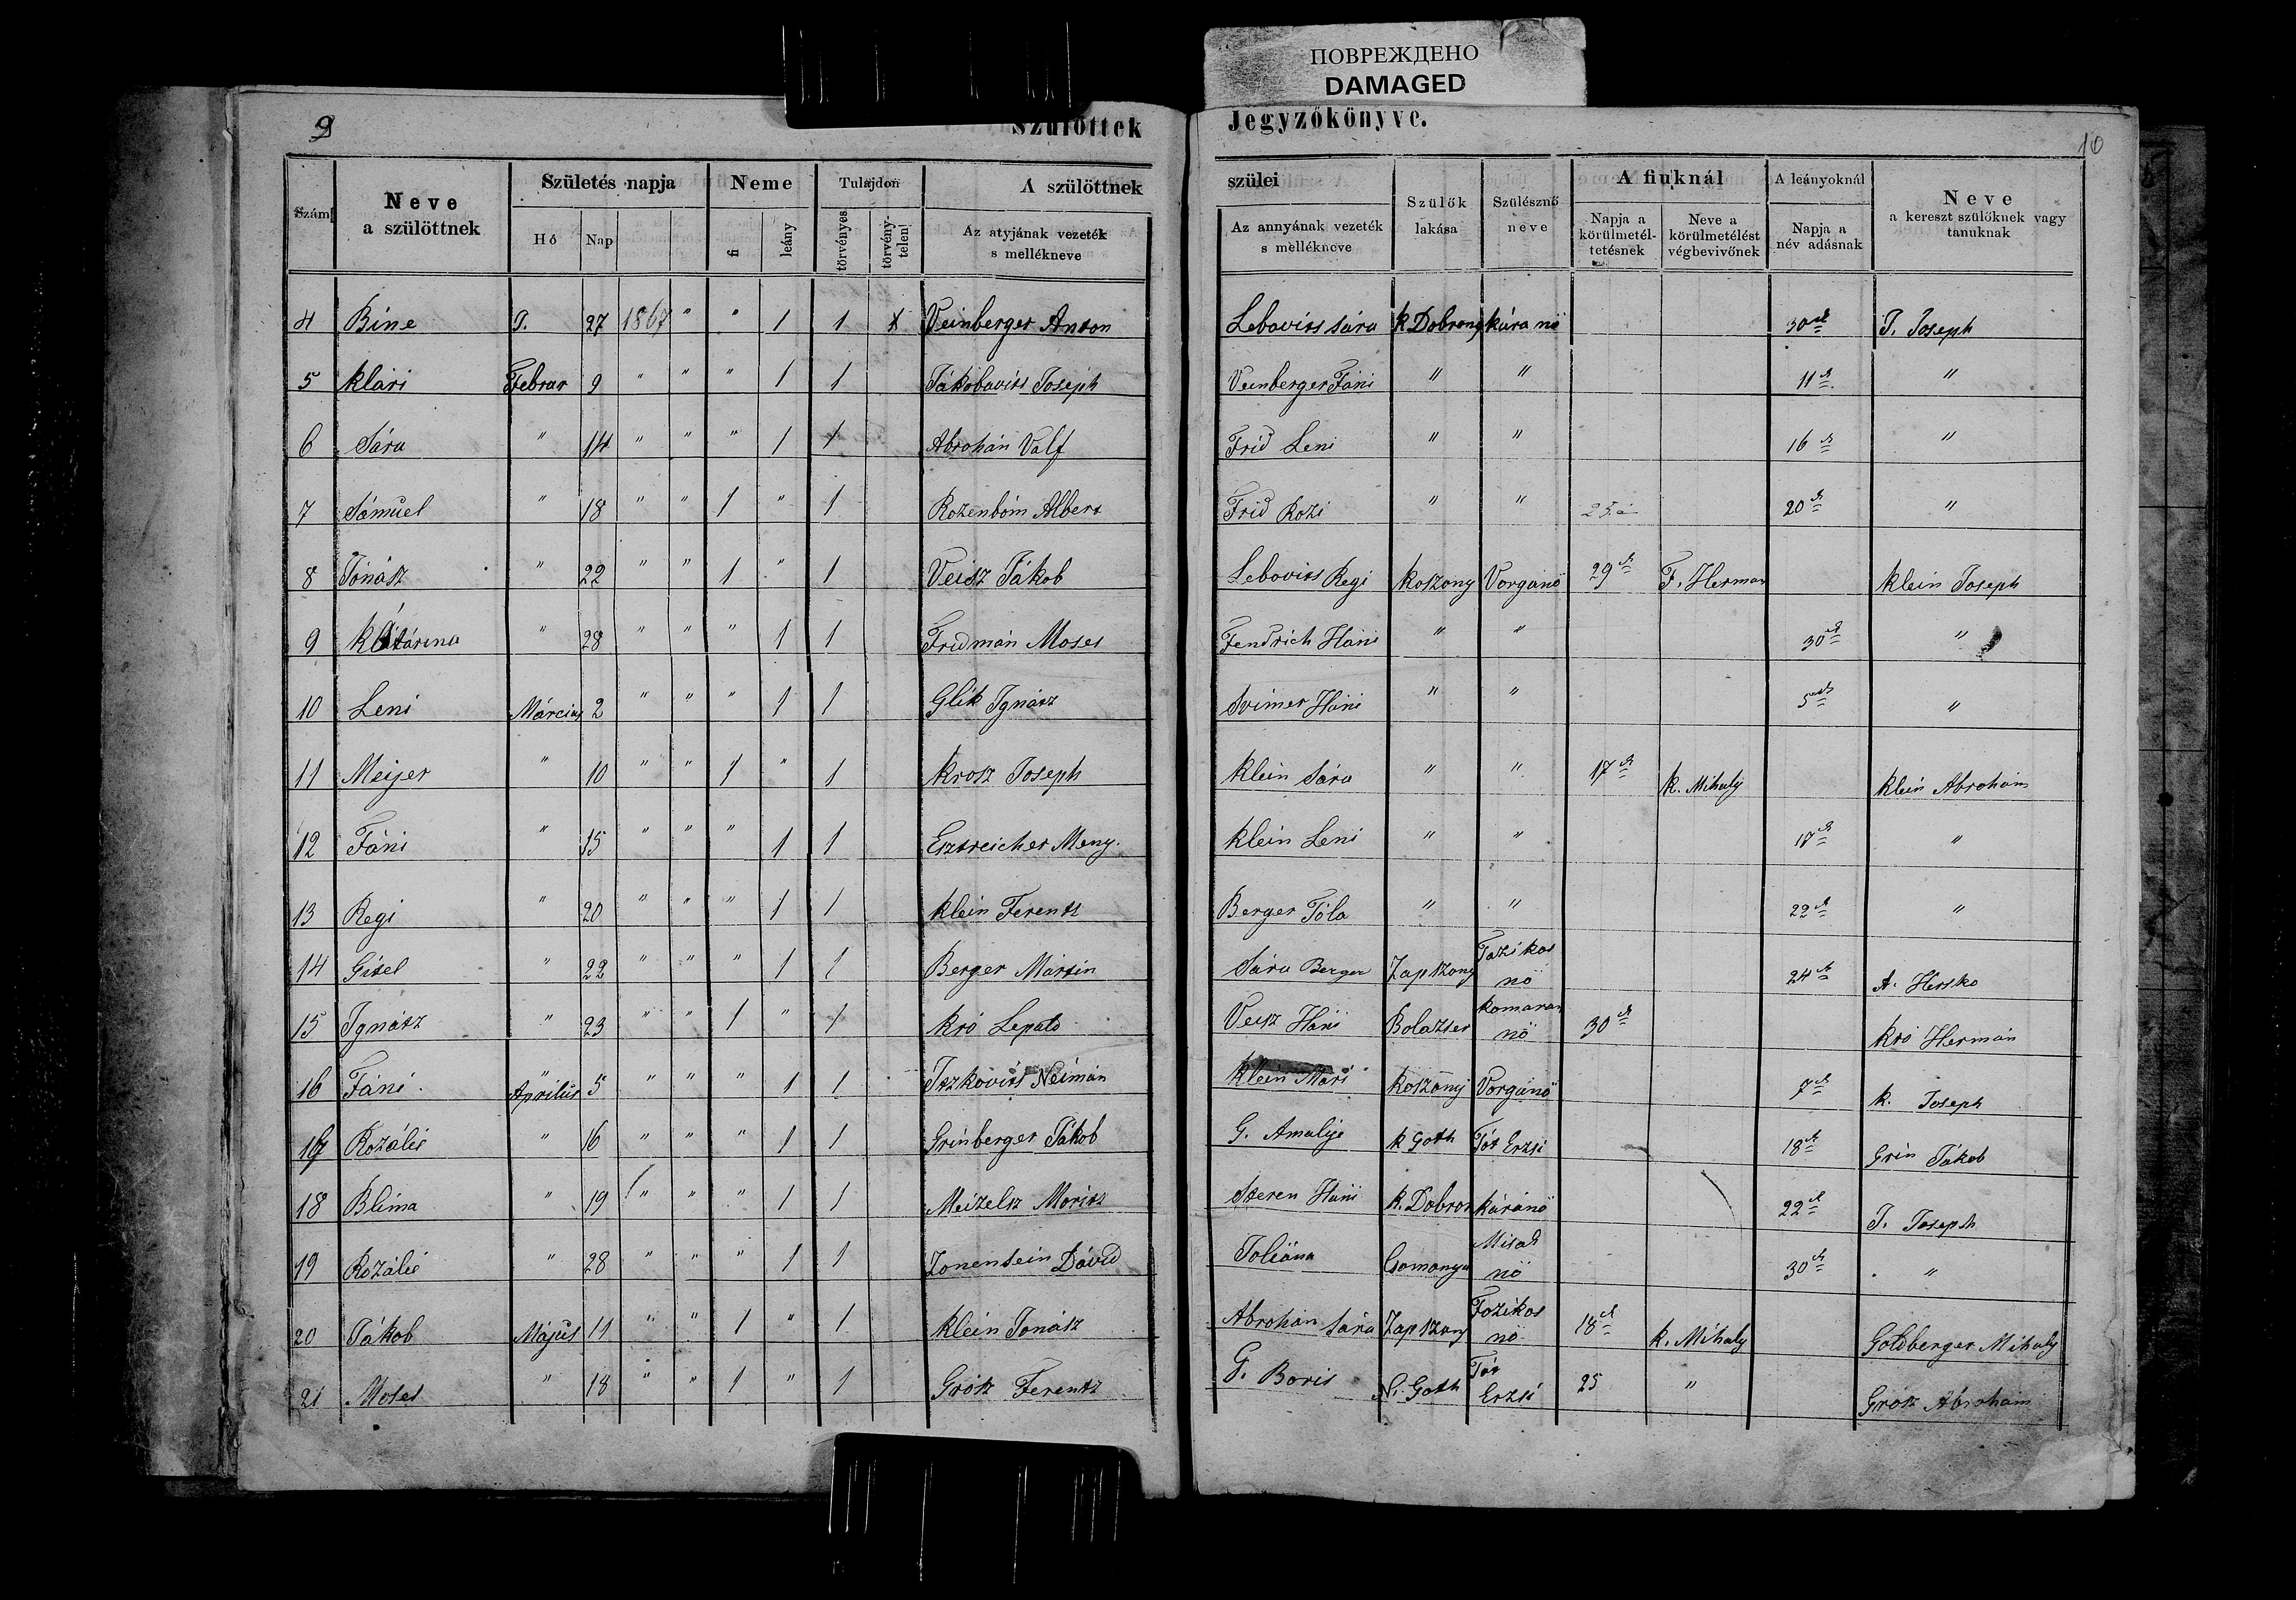 ПОВРЕЖДЕНО
DAMAGED
9
Szülöttek
Jegyzőkönyve.
10
Szám
Neve
a szülöttnek
Születés napja
Hó
Nap
Neme
fi
leány
Tulajdon
törvényes
törvény-
telen
A szülöttnek
Az atyjának vezeték
s mellékneve
szülei
Az annyának vezeték
s mellékneve
Szülők
lakása
Szülésznő
neve
A fiuknál
Napja a
körülmetél-
tetésnek
Neve a
körülmetélést
végbevivőnek
A leányoknál
Napja a
név adásnak
Neve
a kereszt szülőknek vagy
tanuknak
4 Bine J. 27 1867 " " 1 1 Veinberger Anton Lebovits Sára k Dobrony kúra nö 30 J. Joseph
5 Klári Februar 9 " " " 1 1 Jákobovits Joseph Veinberger Fáni " " 11 "
6 Sára " 14 " " " 1 1 Abrohán Valf Frid Leni " " 16 "
7 Sámuel " 18 " " 1 " 1 Rozenbóm Albert Frid Rozi " " 25 20 "
8 Jónász " 22 " " 1 " 1 Veisz Jákob Lebovits Regi Koszony Vorgánö 29 F. Herman Klein Joseph
9 Kátárina " 28 " " " 1 1 Fridmán Moses Fendrich Háni " " 30 "
10 Leni Március 2 " " " 1 1 Glik Ignátz Svimer Háni " " 5 "
11 Meijer " 10 " " 1 " 1 Krosz Joseph Klein Sára " " 17 K. Mihály Klein Abrohám
12 Fáni " 15 " " " 1 1 Esztreicher Meny. Klein Leni " " 17 "
13 Regi " 20 " " " 1 1 Klein Ferentz Berger Jóla " " 22 "
14 Gitel " 22 " " " 1 1 Berger Mártin Sára Berger Zapszony Fozikos nö 24 A. Hersko
15 Ignátz " 23 " " 1 " 1 Kró Lepold Veisz Háni Bolazser Komaran nö 30 Kró Hermán
16 Fáni Április 5 " " " 1 1 Iszkovits Neimán Klein Mári Koszony Vorgánö 7 K. Joseph
17 Rozális " 16 " " " 1 1 Grinberger Jákob G. Amalije k Goth Tót Erzsi 18 Grin Jákob
18 Blima " 19 " " " 1 1 Meizelsz Moritz Steren Háni k. Dobron Kúránö 22 J. Joseph
19 Rozális " 28 " " " 1 1 Zonenstein Dávid Joliána Csomonya nö 30 "
20 Jákob Május 11 " " 1 " 1 Klein Jonász Abrohán Sára Zapszony Fozikos nö 18 K. Mihály Goldberger Mihály
21 Moses " 18 " " 1 " 1 Grósz Ferentz G. Boris N. Goth Tót Erzsi 25 " Grósz Abrohám